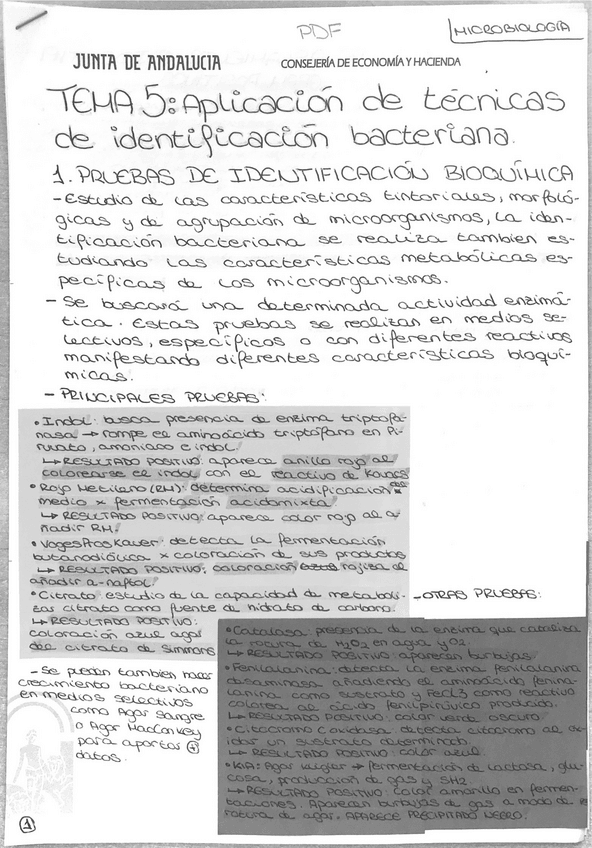 PDF
MICROBIOLOGÍA
JUNTA DE ANDALUCIA
CONSEJERÍA DE ECONOMÍA Y HACIENDA
TEMA 5: Aplicación de técnicas
de identificación bacteriana.
1. PRUEBAS DE IDENTIFICACIÓN BIOQUÍMICA
- Estudio de las características tintoriales, morfoló-
gicas y de agrupación de microorganismos, la iden-
tificación bacteriana se realiza tambien es-
tudiando las características metabólicas es-
pecíficas de los microorganismos.
- Se buscará una determinada actividad enzimá-
tica. Estas pruebas se realizan en medios se-
lectivos, específicos o con diferentes reactivos
manifestando diferentes características bioquí-
micas.
- PRINCIPALES PRUEBAS:
• Indol: busca presencia de enzima triptofa-
nasa → rompe el aminoácido triptófano en Pi-
ruvato, amoniaco e indol.
↳ RESULTADO POSITIVO: aparece anillo rojo al
colorearse el indol con el reactivo de Kovacs
• Rojo Metileno (RM): determina acidificación del
medio x fermentación acidomixta
↳ RESULTADO POSITIVO: aparece color rojo al a-
ñadir RM.
• Voges Proskauer: detecta la fermentación
butanodiólica x coloración de sus productos
↳ RESULTADO POSITIVO: coloración rojiza al
añadir a-naftol.
• Citrato: estudio de la capacidad de metaboli-
zar citrato como fuente de hidrato de carbono.
↳ RESULTADO POSITIVO:
coloración azul agar
del citrato de Simmons
- OTRAS PRUEBAS:
• Catalasa: presencia de la enzima que cataliza
la rotura de H2O2 en agua y O2.
↳ RESULTADO POSITIVO: aparecen burbujas.
• Fenilalanina: detecta la enzima fenilalanina
desaminasa añadiendo el aminoácido fenina-
lanina como sustrato y FeCl3 como reactivo
colorea al ácido fenilpirúvico producido.
↳ RESULTADO POSITIVO: color verde oscuro.
• Citocromo C oxidasa: detecta citocromo al oxi-
dar un sustrato determinado.
↳ RESULTADO POSITIVO: color azul.
• KIA: Agar kligler → fermentación de lactosa, glu-
cosa, producción de gas y SH2.
↳ RESULTADO POSITIVO: color amarillo en fermen-
taciones. Aparecen burbujas de gas a modo de
rotura de agar. APARECE PRECIPITADO NEGRO.
- Se pueden tambien hacer
crecimiento bacteriano
en medios selectivos
como Agar Sangre
o Agar MacConkey
para aportar ⊕
datos.
1